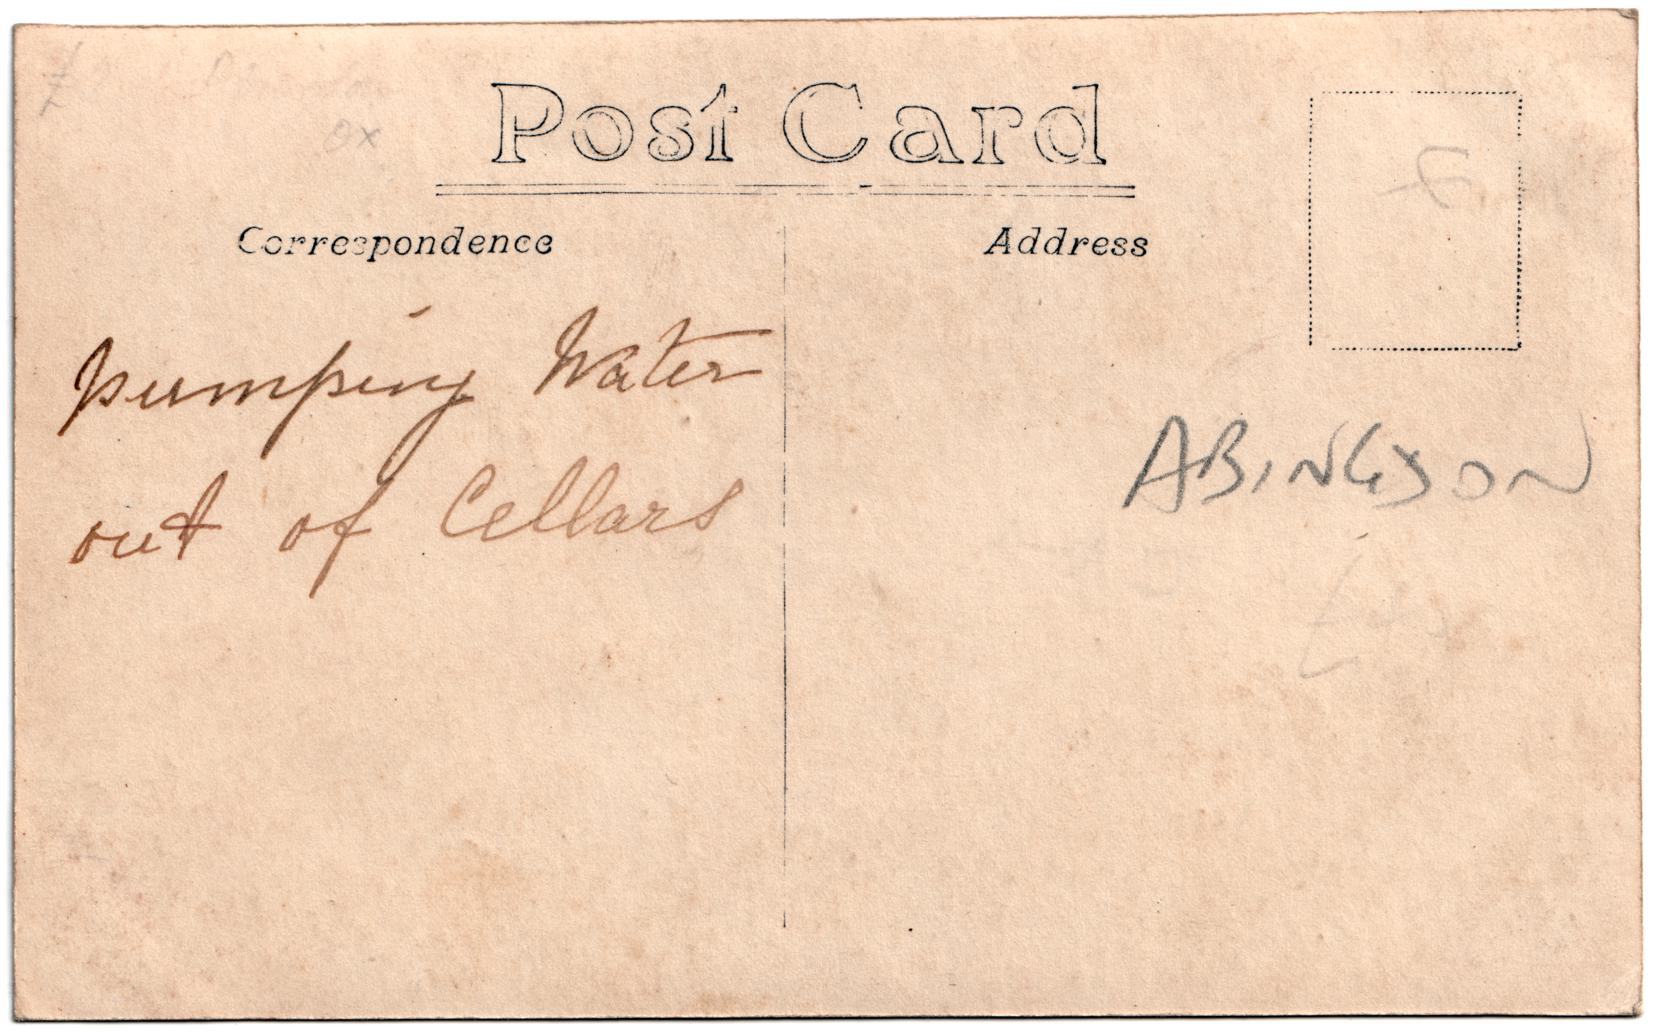 Post Card
Correspondence
Address
pumping Water
out of Cellars
ABINGDON
ox